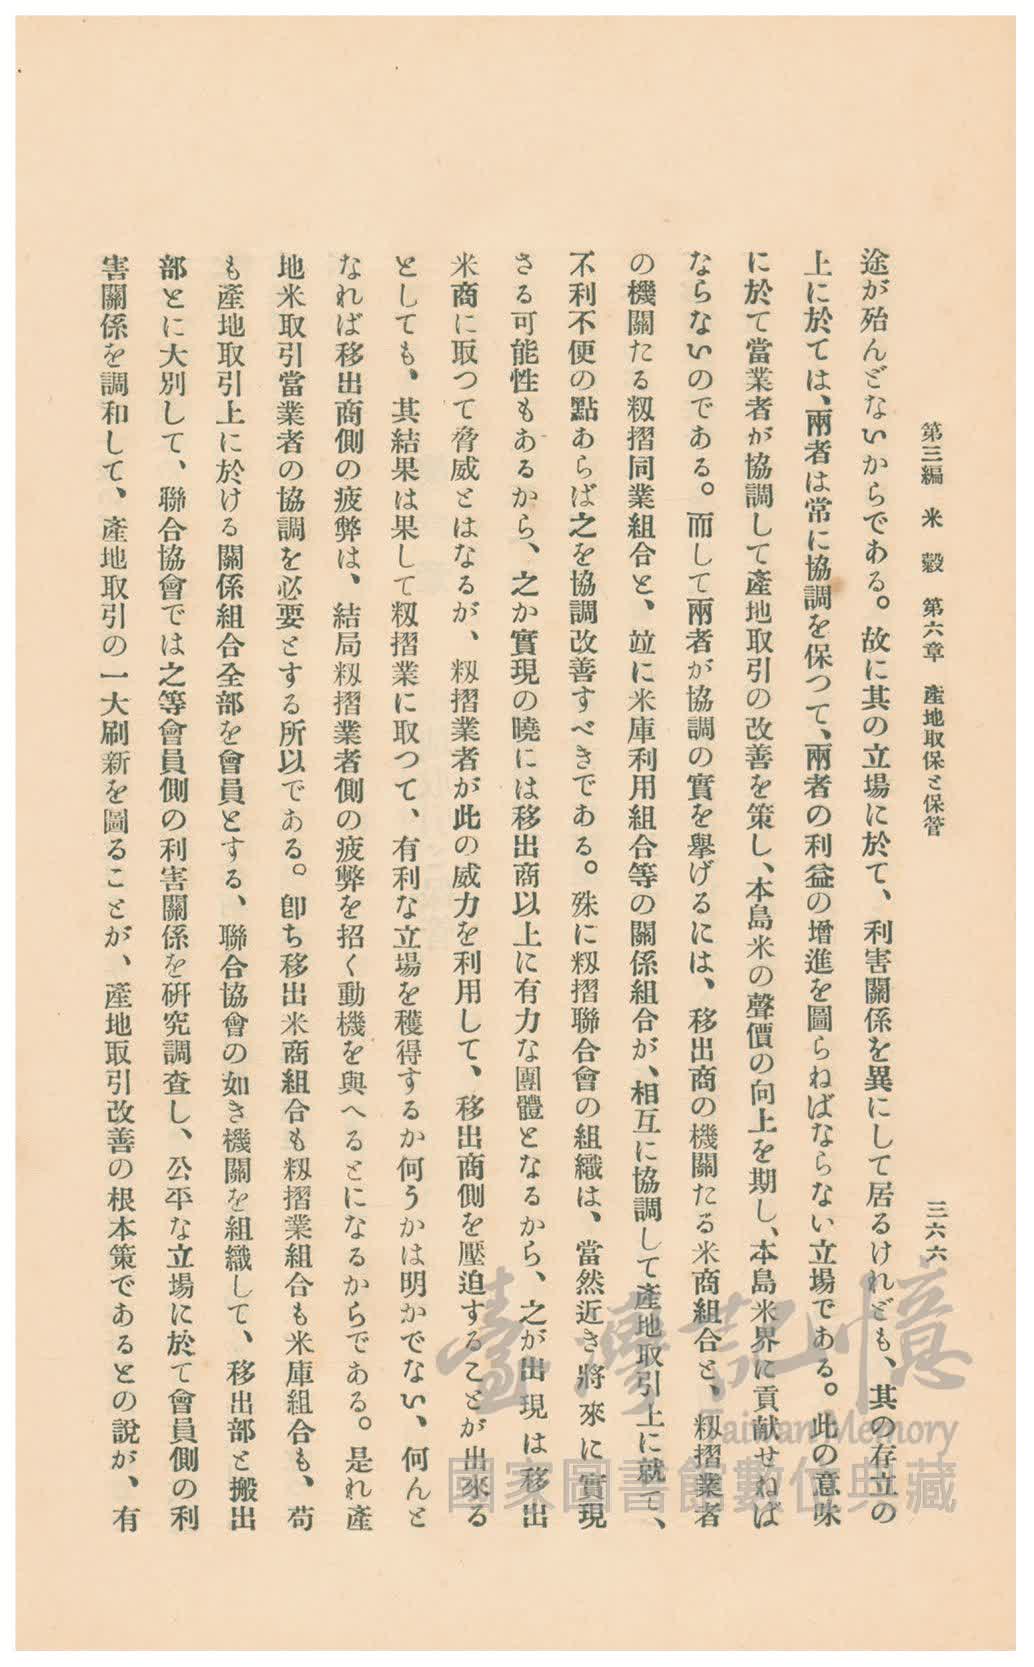 第三編 米穀 第六章 產地取保と保管
三六六
途が殆んどないからである。故に其の立場に於て、利害關係を異にして居るけれども、其の存立の
上に於ては、兩者は常に協調を保つて、兩者の利益の增進を圖らねばならない立場である。此の意味
に於て當業者が協調して產地取引の改善を策し、本島米の聲價の向上を期し、本島米界に貢献せねば
ならないのである。而して兩者が協調の實を擧げるには、移出商の機關たる米商組合と、籾摺業者
の機關たる籾摺同業組合と、竝に米庫利用組合等の關係組合が、相互に協調して產地取引上に就て、
不利不便の點あらば之を協調改善すべきである。殊に籾摺聯合會の組織は、當然近き將來に實現
さる可能性もあるから、之か實現の曉には移出商以上に有力な團體となるから、之が出現は移出
米商に取つて脅威とはなるが、籾摺業者が此の威力を利用して、移出商側を壓迫することが出來る
としても、其結果は果して籾摺業に取つて、有利な立場を穫得するか何うかは明かでない、何んと
なれば移出商側の疲弊は、結局籾摺業者側の疲弊を招く動機を與へるとになるからである。是れ產
地米取引當業者の協調を必要とする所以である。卽ち移出米商組合も籾摺業組合も米庫組合も、苟
も產地取引上に於ける關係組合全部を會員とする、聯合協會の如き機關を組織して、移出部と搬出
部とに大別して、聯合協會では之等會員側の利害關係を硏究調査し、公平な立場に於て會員側の利
害關係を調和して、產地取引の一大刷新を圖ることが、產地取引改善の根本策であるとの說が、有
臺灣記憶
Taiwan Memory
國家圖書館數位典藏